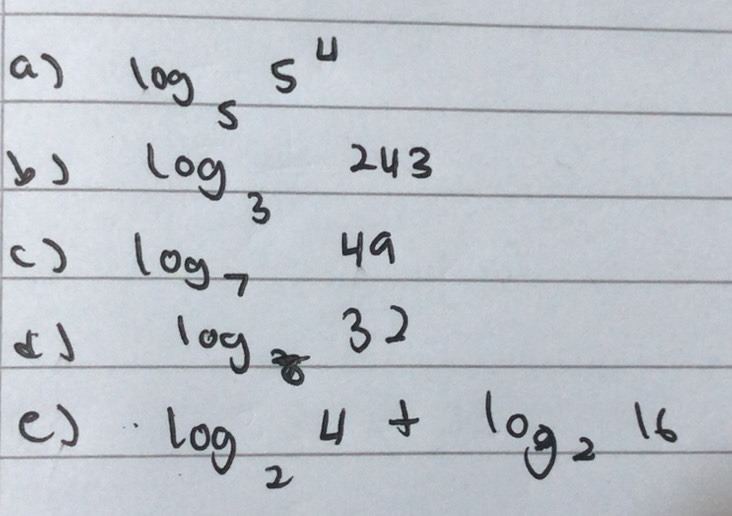 a) log₅ 5⁴
b) log₃ 243
c) log₇ 49
d) log 32
e) log₂ 4 + log₂ 16